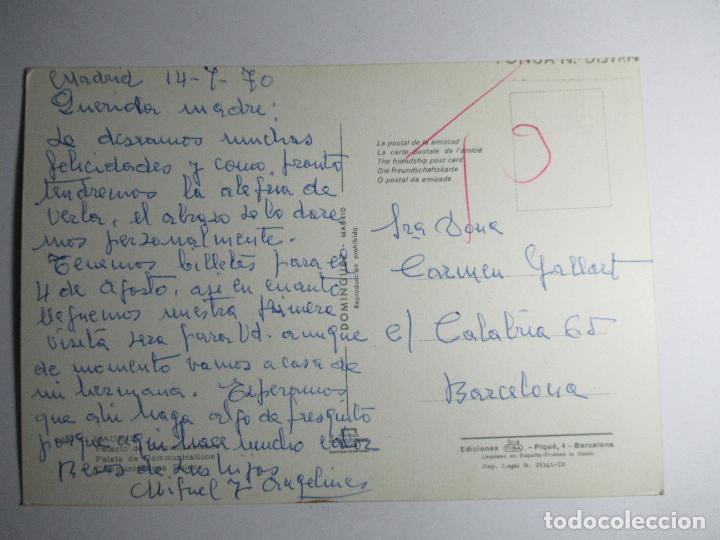 Madrid 14-7-70
Querida madre:
Le deseamos muchas
felicidades y como pronto
tendremos la alegria de
verla, el abrazo se lo dare
mos personalmente.
Tenemos billetes para el
4 de Agosto, asi en cuanto
lleguemos nuestra primera
visita sera para Vd. aunque
de momento vamos a casa de
mi hermana. Esperamos
que ahi haga algo de fresquito
porque aqui hace mucho calor
Besos de sus hijos
Miguel y Angelines
Palacio de Comunicaciones
Palais de Communications
DOMINGUEZ - MADRID
Reproducción prohibida
PONGA N.º DISTRI
La postal de la amistad
La carte postale de l'amitié
The friendship post card
Die freundschaftskarte
O postal da amizade
Sra Dona
Carmen Gallart
c/ Calabria 65
Barcelona
Ediciones FISA - Piqué, 4 - Barcelona
Impreso en España-Printed in Spain
Dep. Legal B. 25141-IX
todocoleccion.net